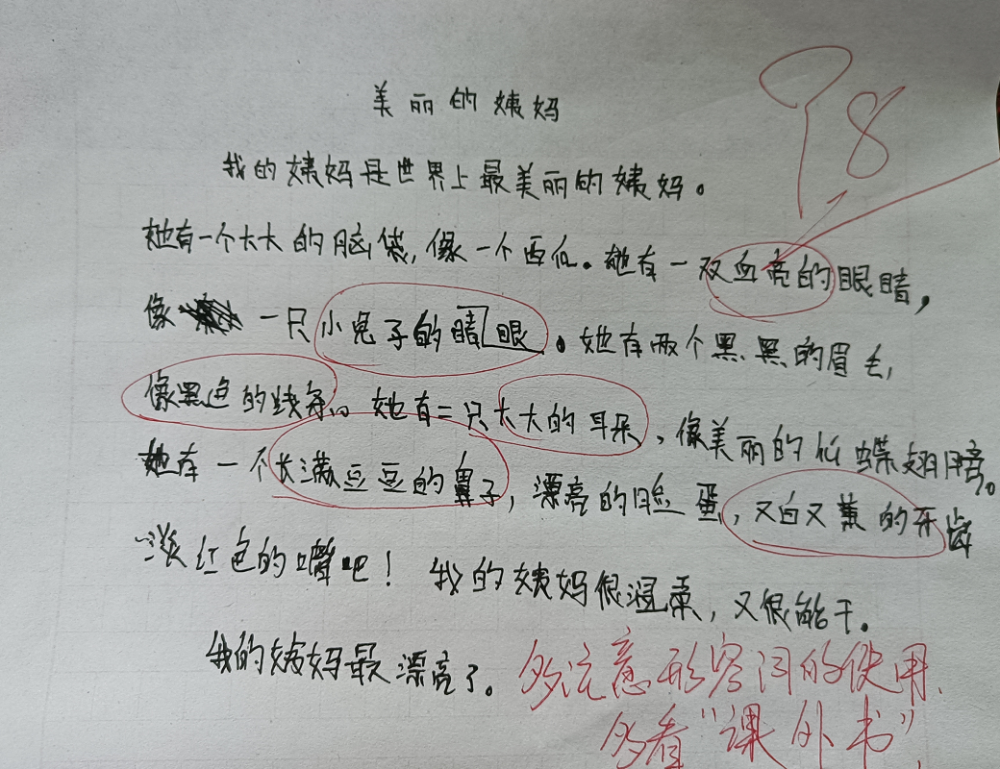 美丽的姨妈
我的姨妈是世界上最美丽的姨妈。
她有一个大大的脑袋,像一个西瓜。她有一双血亮的眼睛,
像一只小兔子的睛眼。她有两个黑黑的眉毛,
像黑色的线条。她有二只大大的耳朵,像美丽的仙蝶翅膀。
她有一个长满豆豆的鼻子,漂亮的脸蛋,又白又黄的牙齿
淡红色的嘴吧!我的姨妈很温柔,又很能干。
我的姨妈最漂亮了。
多注意形容词的使用.
多看“课外书”
?8